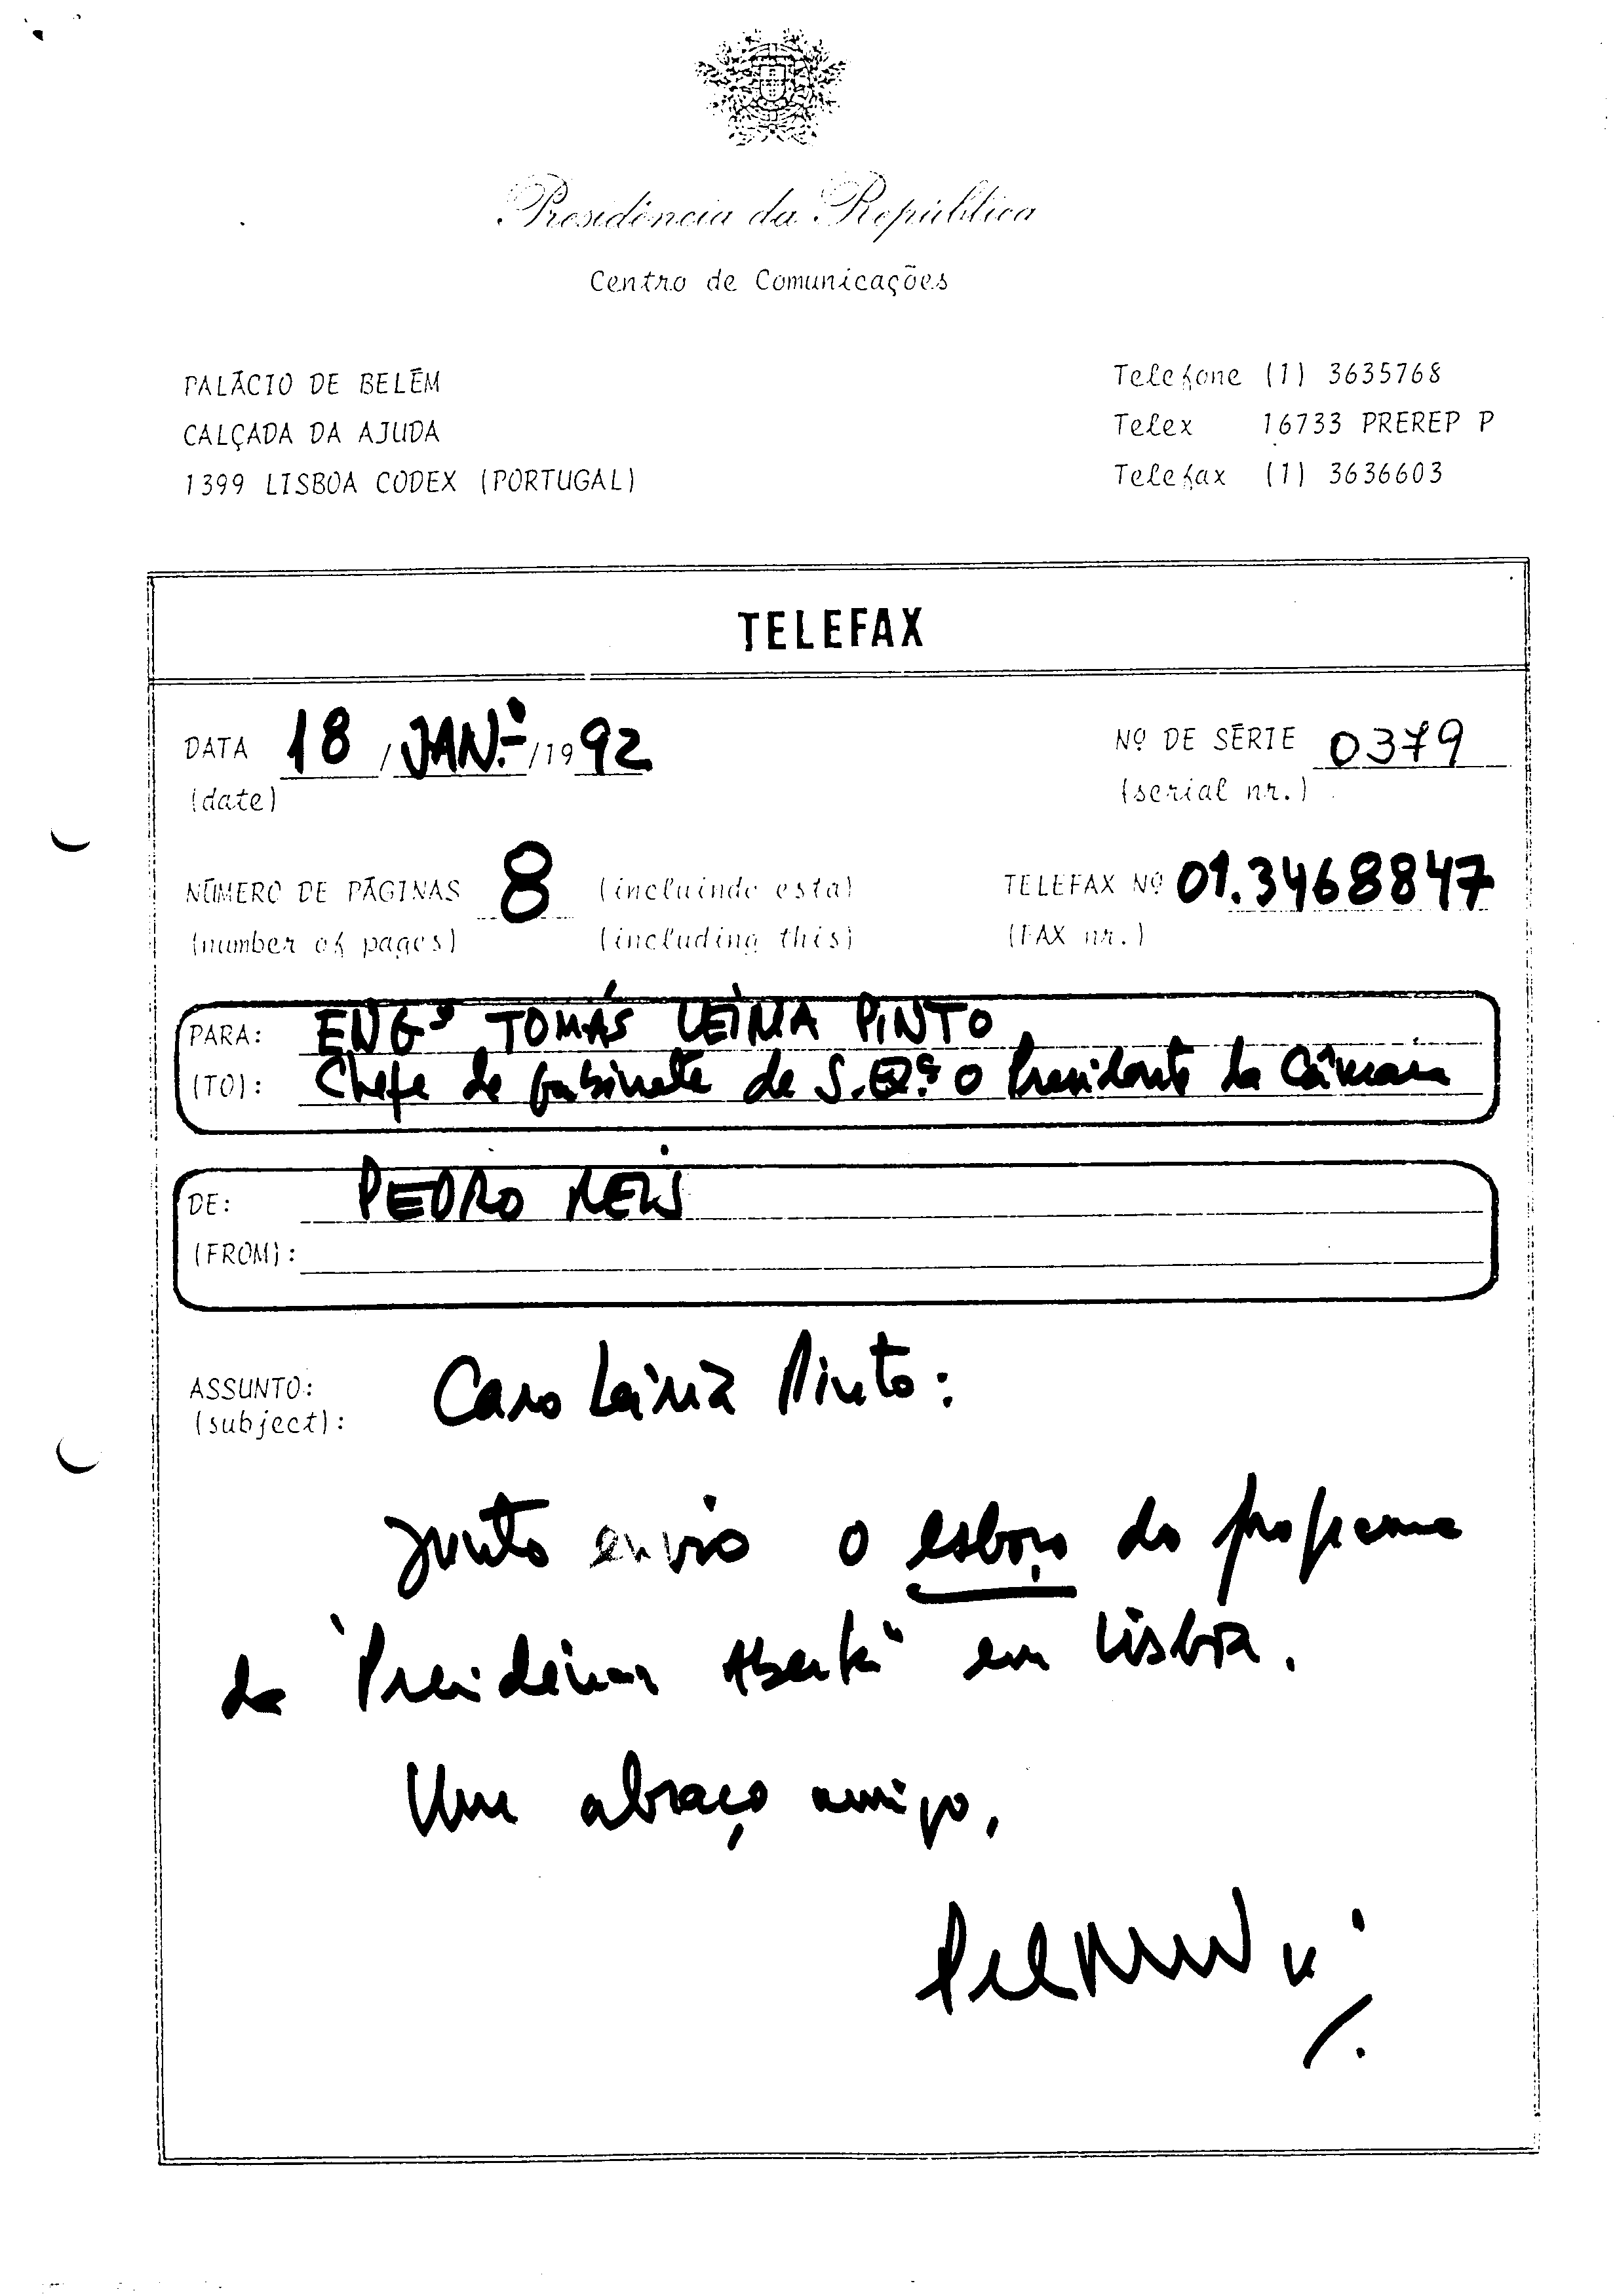 Presidência da República
Centro de Comunicações
PALÁCIO DE BELÉM
CALÇADA DA AJUDA
1399 LISBOA CODEX (PORTUGAL)
Telefone (1) 3635768
Telex 16733 PREREP P
Telefax (1) 3636603
TELEFAX
DATA 18 / JAN.º / 19 92
(date)
Nº DE SÉRIE 0379
(serial nr.)
NÚMERO DE PÁGINAS 8 (incluindo esta)
(number of pages) (including this)
TELEFAX Nº 01.3468847
(FAX nr.)
PARA: ENGº TOMÁS LEIRIA PINTO
(TO): Chefe de Gabinete de S. Exª o Presidente da Câmara
DE: PEDRO REIS
(FROM):
ASSUNTO: Caro Leiria Pinto:
(subject):
Junto envio o esboço do programa
da "Presidência Aberta" em Lisboa.
Um abraço amigo,